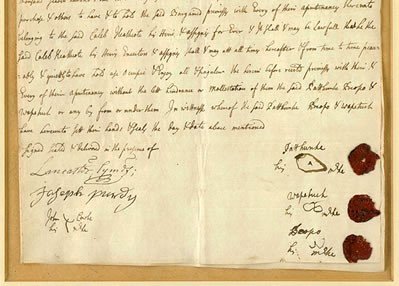 purchase & others to have & to hold the said Bargained premises with Every of their apurtenancy thereunto
belonging to the said Caleb Heathcote his Heirs & assigns for Ever & It shall & may be Lawfull the
said Caleb Heathcote his Heirs Executors & assigns shall & may att all times hereafter from time to time peac-
ably & quietly have hold use occupie & Enjoy all & singular the herein before recited premises with their &
Every of their apurtenancy without the Lett hindrance or Mollestation of them the said Patthunke Beopo &
Wapetuck or any by from or under them In witnesse wherof the said Patthunke Beopo & Wapetuck
have hereunto sett their hands & seals the day & date above mentioned
signed seald & Delivered in the presence of
Lancaster Symes
Joseph purdy
John Cooke
his mrke
Patthunke
his mrke
Wapetuck
his mrke
Beopo
his mrke